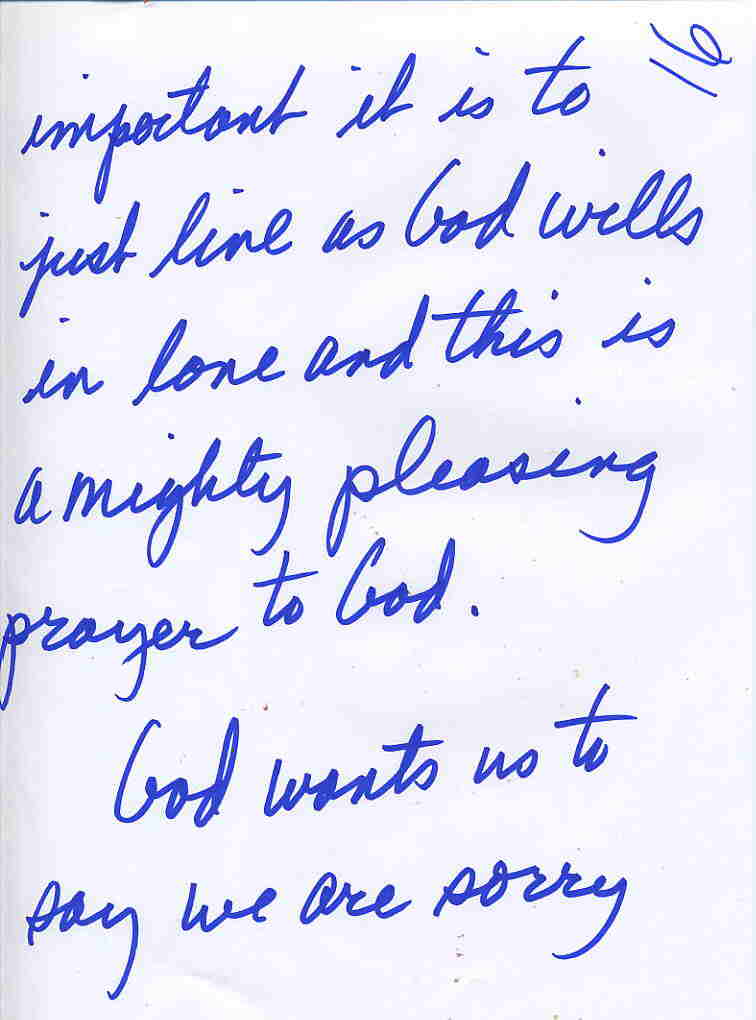 16
important it is to
just live as God wills
in love and this is
a mighty pleasing
prayer to God.
God wants us to
say we are sorry